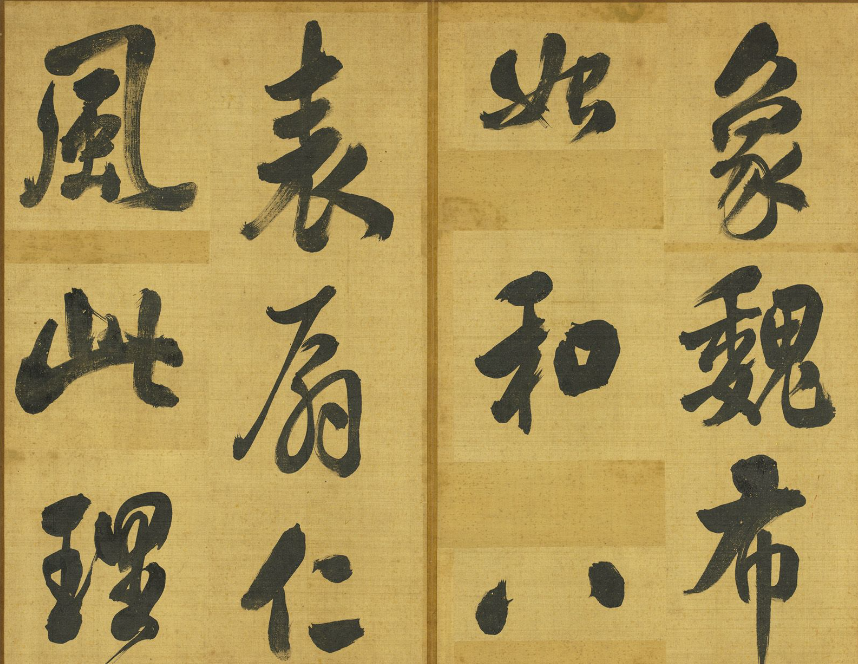 象魏布
始和八
表扇仁
風此理